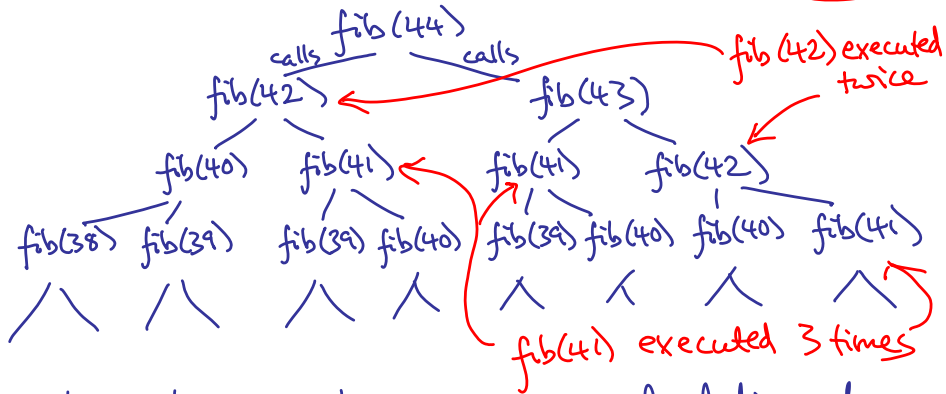 fib(44)
calls calls
fib(42) executed
twice
fib(42) fib(43)
fib(40) fib(41) fib(41) fib(42)
fib(38) fib(39) fib(39) fib(40) fib(39) fib(40) fib(40) fib(41)
fib(41) executed 3 times